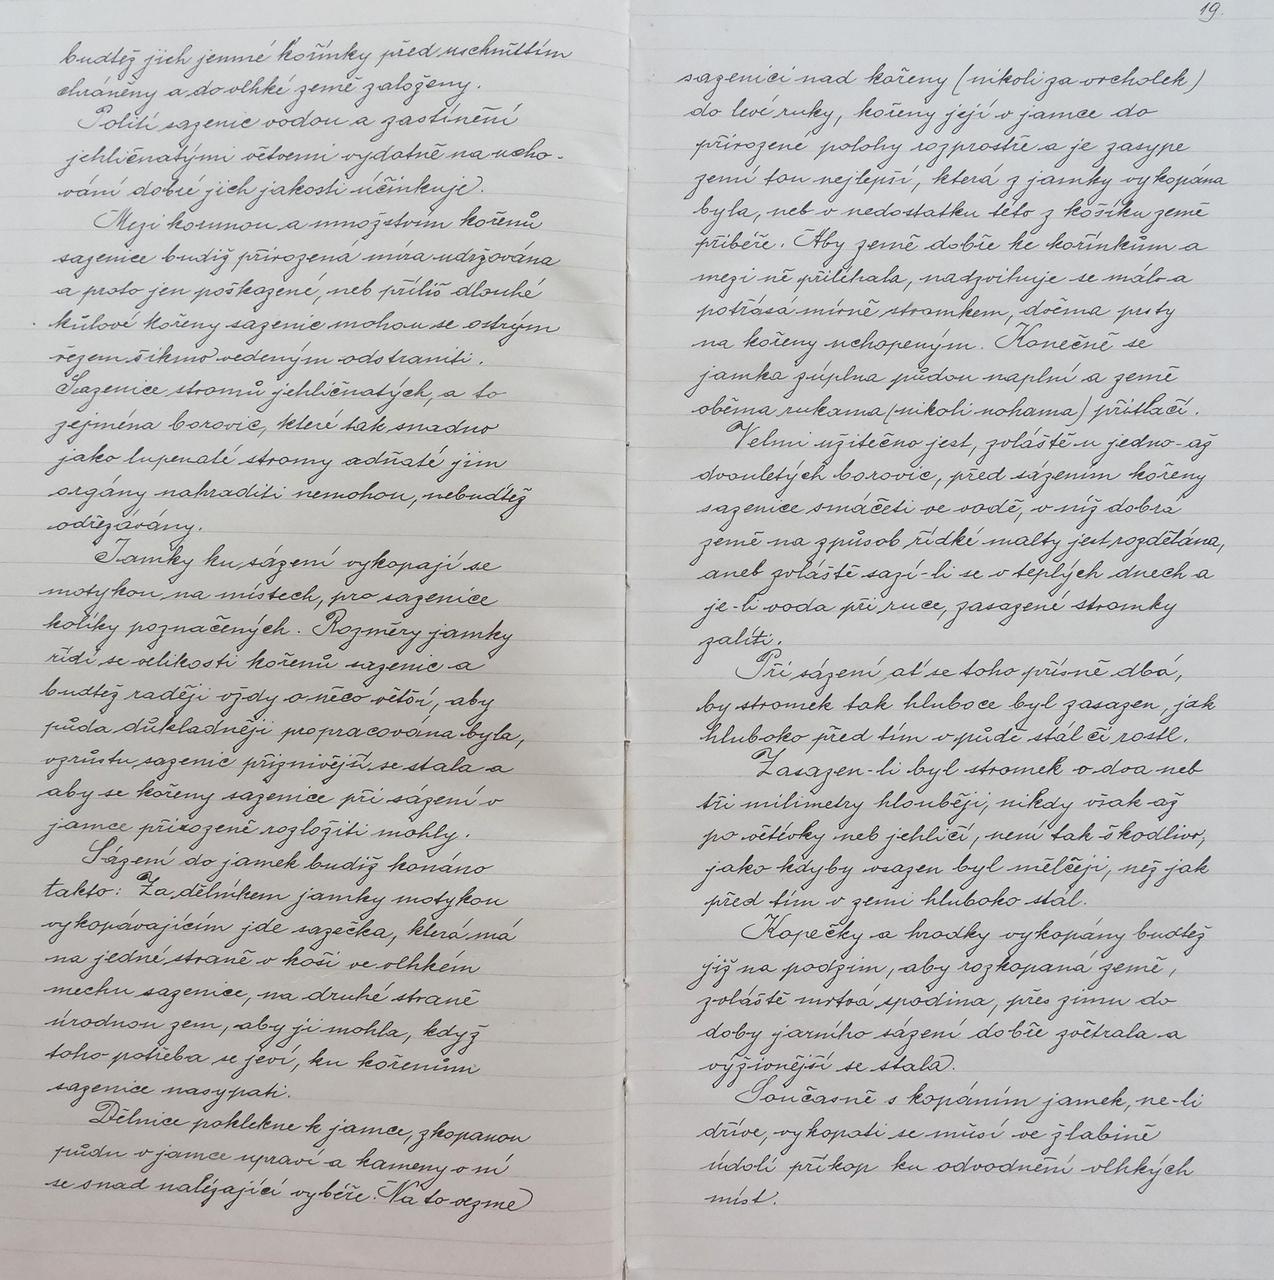 budtež jich jemné kořínky před uschnutím
chráněny a do vlhké země založeny.
Politi sazenic vodou a zastínění
jehličnatými větvemi vydatně na ucho-
vání dobré jich jakosti účinkuje.
Mezi korunou a množstvím kořenů
sazenice budiž přirozená míra udržována
a proto jen poškozené, neb příliš dlouhé
kůlové kořeny sazenic mohou se ostrým
řezem šikmo vedeným odstraniti.
Sazenice stromů jehličnatých, a to
zejména borovic, které tak snadno
jako lupenaté stromy odňaté jim
orgány nahraditi nemohou, nebudtěž
odřezávány.
Jamky ku sázení vykopají se
motykou na místech, pro sazenice
kolíky poznačených. Rozměry jamky
řídí se velikostí kořenů sazenic a
budtež raději vždy o něco větší, aby
půda důkladněji propracována byla,
vzrůstu sazenic příznivější se stala a
aby se kořeny sazenice při sázení v
jamce přirozeně rozložiti mohly.
Sázení do jamek budiž konáno
takto: Za dělníkem jamky motykou
vykopávajícím jde sazečka, která má
na jedné straně v koši ve vlhkém
mechu sazenice, na druhé straně
úrodnou zem, aby ji mohla, když
toho potřeba se jeví, ku kořenům
sazenice nasypati.
Dělnice poklekne k jamce, zkopanou
půdu v jamce upraví a kameny v ní
se snad nalézající vybéře. Na to vezme
19.
sazenici nad kořeny (nikoli za vrcholek)
do levé ruky, kořeny její v jamce do
přirozené polohy rozprostře a je zasype
zemí tou nejlepší, která z jamky vykopána
byla, neb v nedostatku této z košíku země
přibéře. Aby země dobře ke kořínkům a
mezi ně přiléhala, nadzvihuje se málo a
potřásá mírně stromkem, dvěma prsty
na kořeny uchopeným. Konečně se
jamka zúplna půdou naplní a země
oběma rukama (nikoli nohama) přitlačí.
Velmi užitečno jest, zvláště u jedno- až
dvouletých borovic, před sázením kořeny
sazenice smáčeti ve vodě, v níž dobrá
země na způsob řídké malty jest rozdělána,
aneb zvláště sází-li se v teplých dnech a
je-li voda při ruce, zasazené stromky
zalíti.
Při sázení ať se toho přísně dbá,
by stromek tak hluboce byl zasazen, jak
hluboko před tím v půdě stál či rostl.
Zasazen-li byl stromek o dva neb
tři milimetry hlouběji, nikdy však až
po větévky neb jehličí, není tak škodlivo,
jako kdyby vsazen byl mělčeji, než jak
před tím v zemi hluboko stál.
Kopečky a hrobky vykopány budtež
již na podzim, aby rozkopaná země,
zvláště mrtvá spodina, přes zimu do
doby jarního sázení dobře zvětrala a
výživnější se stala.
Současně s kopáním jamek, ne-li
dříve, vykopati se músí ve žlabině
údolí příkop ku odvodnění vlhkých
míst.